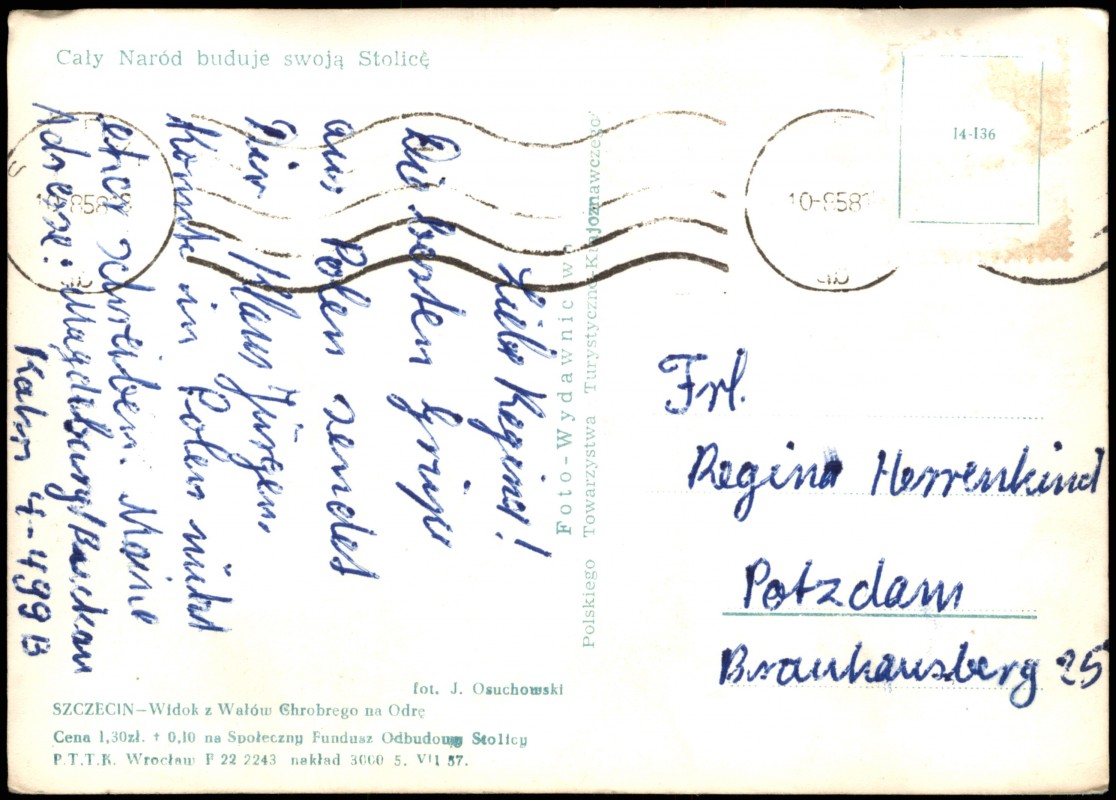 Cały Naród buduje swoją Stolicę
Liebe Regina!
Die besten Grüße
aus Polen sendet
Dir Klaus Jürgen.
Konnte in Polen nicht
eher schreiben. Meine
Adresse: Magdeburg/Buckau
4-499 B
Foto-Wydawnictwo
Polskiego Towarzystwa Turystyczno-Krajoznawczego
I4-I36
10-858
10-858
Frl.
Regina Herrenkind
Potzdam
Brauhausberg 25
fot. J. Osuchowski
SZCZECIN—Widok z Wałów Chrobrego na Odrę
Cena 1,30zł. + 0,10 na Społeczny Fundusz Odbudowy Stolicy
P.T.T.K. Wrocław F 22 2243 nakład 3000 5. VII 57.